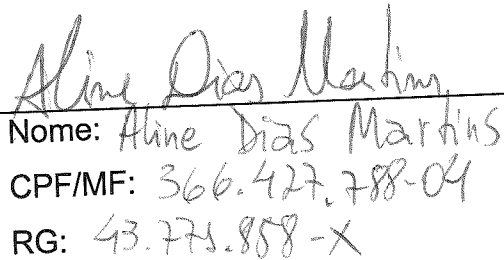 Aline Dias Martins
Nome: Aline Dias Martins
CPF/MF: 366.427.788-04
RG: 43.771.858-X